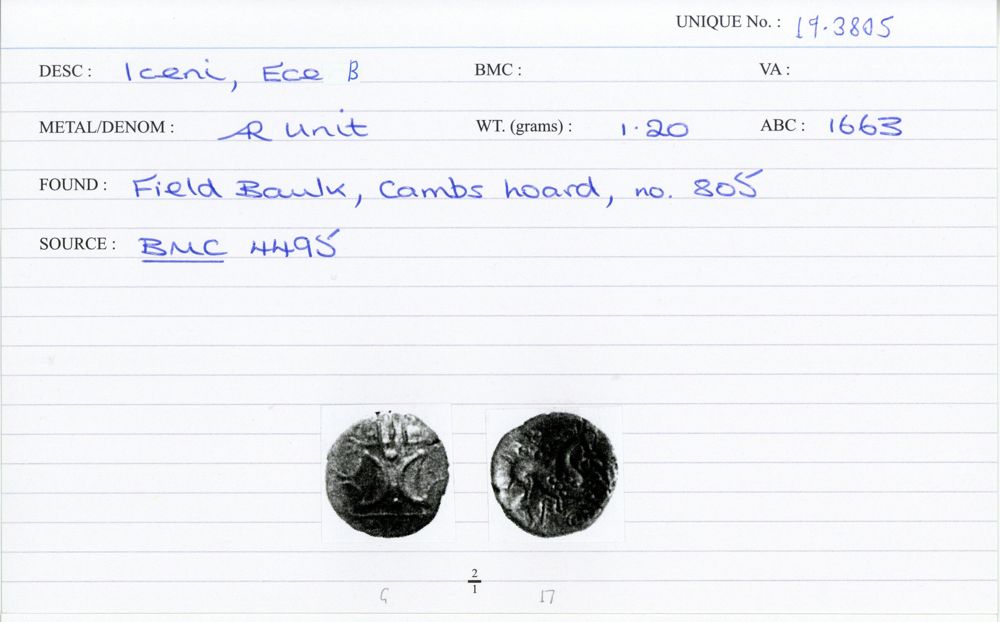 UNIQUE No. : 19.3805
DESC : Iceni, Ece B BMC : VA :
METAL/DENOM : AR Unit WT. (grams) : 1.20 ABC : 1663
FOUND : Field Baulk, Cambs hoard, no. 805
SOURCE : BMC 4495
2
1
G 17